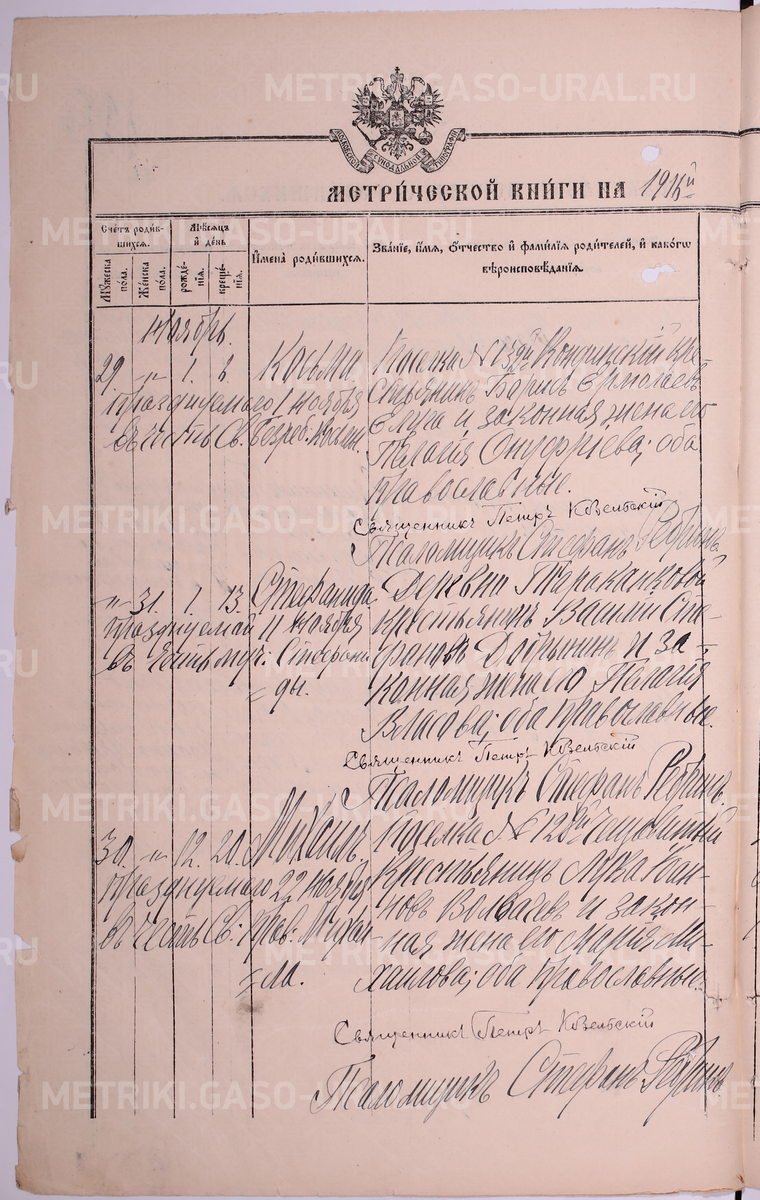 МОСКОВСКОЙ СѴНОДАЛЬНОЙ ТИПОГРАФІИ
МЕТРИ́ЧЕСКОЙ КНИ́ГИ НА
Счетъ роди́вшихся.
Мѣсяцъ и день
Имена̀ роди́вшихся.
Зва́нїе, и́мя, ѻ́тчество и фами́лїя роди́телей, и како́гѡ вѣроисповѣ́данїя.
Мꙋжеска по́ла.
Же́нска по́ла.
рожде́нїя.
креще́нїя.
Ноябрь.
29. " 1. Косьма
празднуемаго 1 Ноября
въ честь Св. Безсреб. Косьм.
Поселка №
крестьянинъ Борисъ Ермолаевъ
и законная жена его
Пелагія Онуфріева; оба
православные.
Священникъ Петръ
Псаломщикъ Стефанъ
" 31. 1. 13. Стефанида
празднуемой 11 Ноября
въ честь муч: Стефани
=ды.
Деревни Таракановой
Крестьянинъ Василій Сте-
фановъ Добрынинъ и за-
конная жена его Пелагія
Власова; оба православные.
Священникъ Петръ
Псаломщикъ Стефанъ
30. " 12. 20. Михаилъ
празднуемаго 22 Ноября
въ честь Св: прав: Михаи
=ла.
Поселка № 128й
Крестьянинъ Лука Иван-
новъ Волвачевъ и закон-
ная жена его Марія Ми-
хаилова; оба православные.
Священникъ Петръ
Псаломщикъ Стефанъ
METRIKI.GASO-URAL.RU